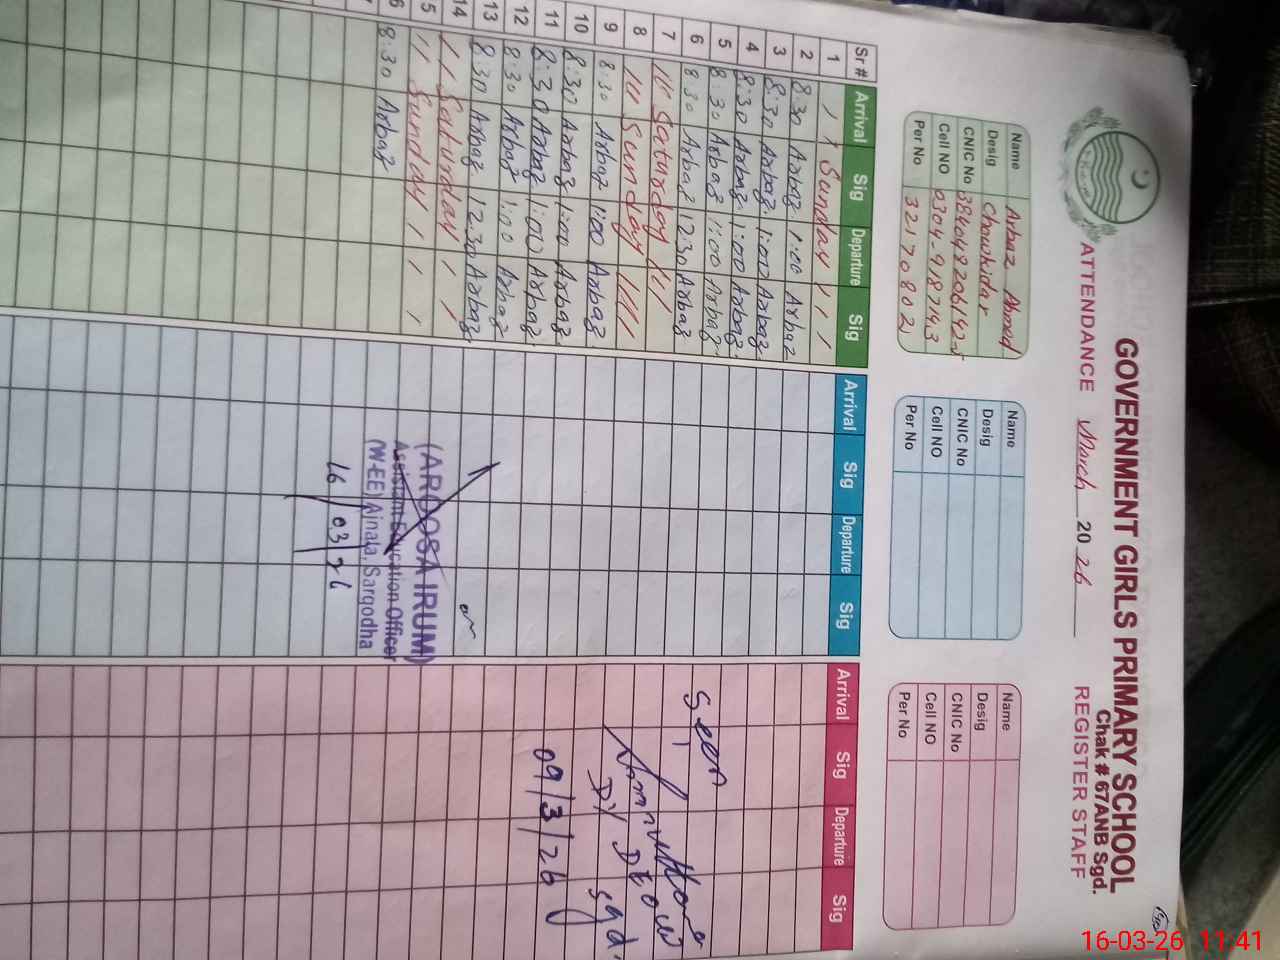 GOVERNMENT GIRLS PRIMARY SCHOOL
Chak # 67ANB Sgd.
ATTENDANCE March 2026 REGISTER STAFF
Name Arbaz Ahmad
Desig Chowkidar
CNIC No
Cell NO 0304-9187433
Per No 32170802
Name
Desig
CNIC No
Cell NO
Per No
Name
Desig
CNIC No
Cell NO
Per No
Sr# Arrival Sig Departure Sig Arrival Sig Departure Sig Arrival Sig Departure Sig
1 / / Sunday / / /
2 8:30 Arbaz 1:00 Arbaz
3 8:30 Arbaz 1:00 Arbaz
4 8:30 Arbaz 1:00 Arbaz
5 8:30 Arbaz 1:00 Arbaz
6 8:30 Arbaz 12:30 Arbaz
7 Saturday
8 Sunday
9 8:30 Arbaz 1:00 Arbaz
10 8:30 Arbaz 1:00 Arbaz
11 8:30 Arbaz 1:00 Arbaz
12 8:30 Arbaz 1:00 Arbaz
13 8:30 Arbaz 12:30 Arbaz
14 / / Saturday / /
15 / / Sunday / / /
16 8:30 Arbaz
(AROOSA IRUM)
Assistant Education Officer
(W-EE) Ainala, Sargodha
16/03/26
Seen
Dy DEO W
Sgd.
09/3/26
16-03-26 11:41